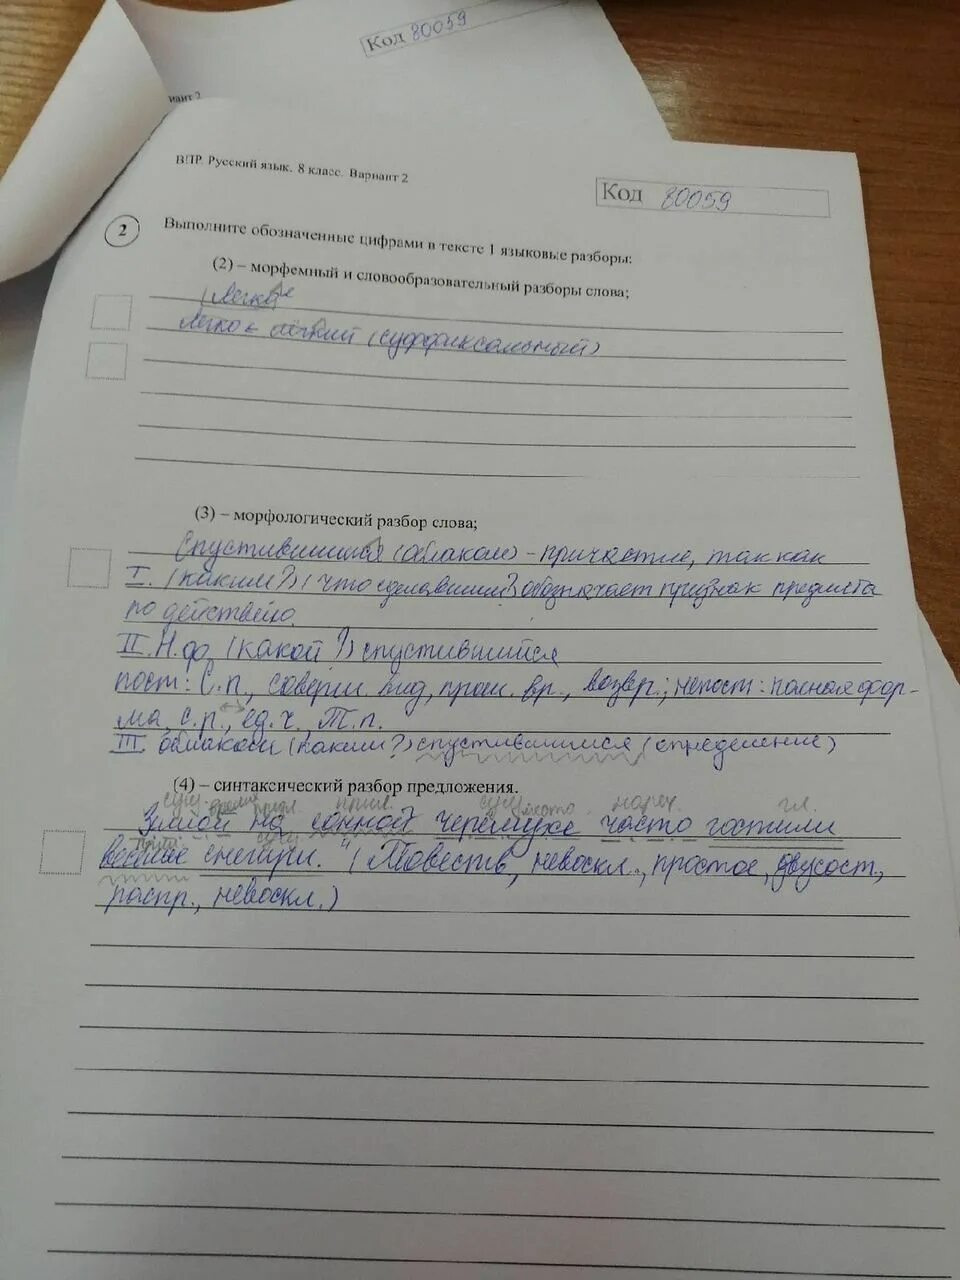 Код 80059
иант 2
ВПР. Русский язык. 8 класс. Вариант 2
Код 80059
2
Выполните обозначенные цифрами в тексте 1 языковые разборы:
(2) – морфемный и словообразовательный разборы слова;
Легко
Легко ← лёгкий (суффиксальный)
(3) – морфологический разбор слова;
Спустившимся (облаком) - причастие, так как
I. (каким?) (что сделавшим?) обозначает признак предмета
по действию.
II. Н.ф. (какой?) спустившийся
пост: С.п., соверш. вид, прош. вр., возвр.; непост: полная фор-
ма, с.р., ед.ч., Т.п.
III. облаком (каким?) спустившимся (определение)
(4) – синтаксический разбор предложения.
сущ. предл. прил. сущ. нареч. гл.
Зимой на сонной черёмухе часто гостили
прил. сущ.
весёлые снегири. (Повеств., невоскл., простое, двусост.,
распр., невоскл.)